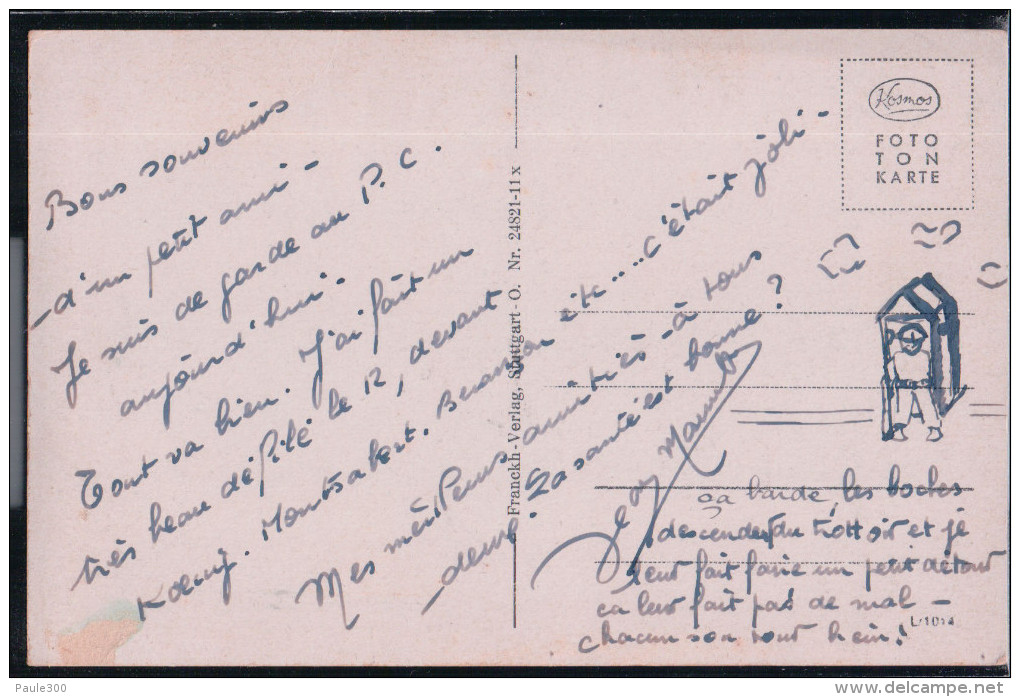 Bons souvenirs
d'un petit ami -
Je suis de garde au P.C.
aujourd'hui -
Tout va bien. J'ai fait un
très beau défilé le 12, devant
Kœnig. Montsabert. etc.... c'était joli -
Mes meilleurs amitiés - à tous
deux. La santé est bonne ?
Franckh-Verlag, Stuttgart-O. Nr. 24821-11x
Kosmos
FOTO
TON
KARTE
ça barde, les boches
descendent du trottoir et je
leur fait faire un petit détour
ça leur fait pas de mal -
chacun son tour hein !
L/1014
Paule300
www.delcampe.net